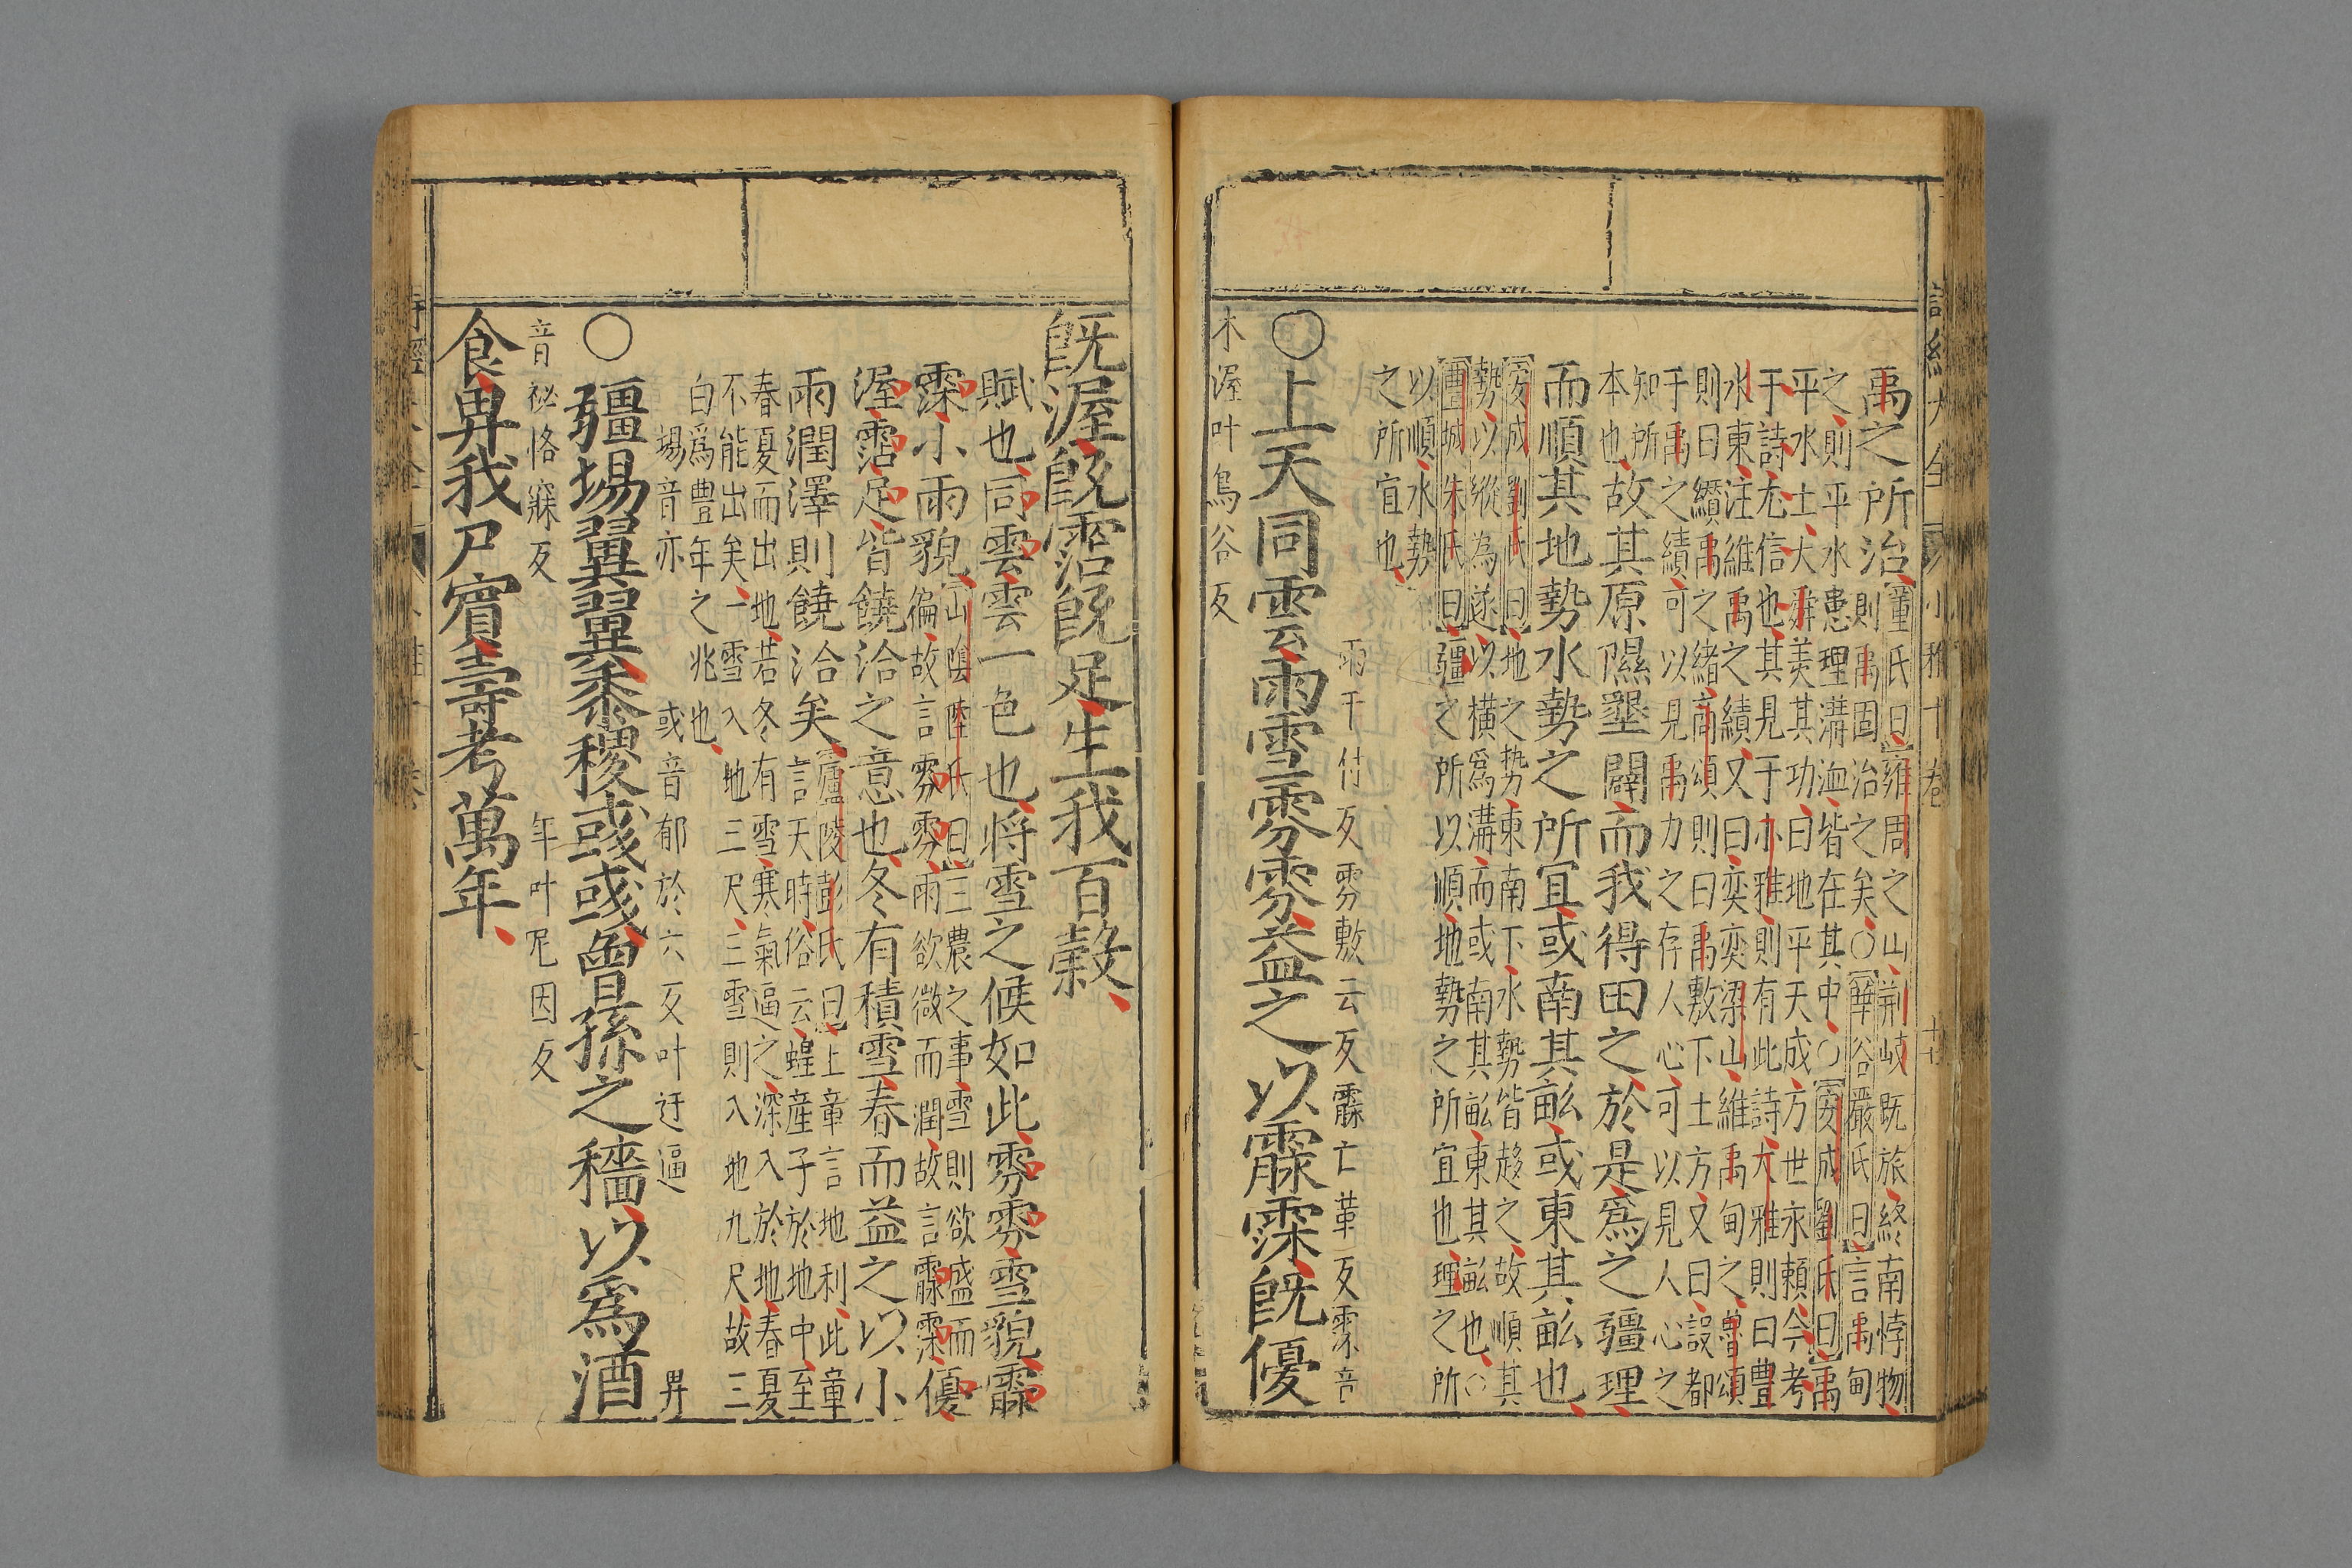 詩經大全 小雅十卷 十七
禹之所治董氏曰雍周之山荆岐既旅終南惇物
則禹固治之矣○華谷嚴氏曰言禹甸
之則平水患理溝洫皆在其中○安成劉氏曰禹
平水土大舜美其功曰地平天成方世永賴今考
于詩尤信也其見于小雅則有此詩大雅則曰豐
水東注維禹之績又曰奕奕梁山維禹甸之魯頌
則曰纘禹之緒商頌則曰禹敷下土方又曰設都
于禹之績可以見禹力之存人心可以見人心之
知所
本也故其原隰墾闢而我得田之於是爲之疆理
而順其地勢水勢之所宜或南其畝或東其畝也
安成劉氏曰地之势東南下水勢皆趍之故順其
勢以縱為遂以橫爲溝而或南其畝東其畝也○
豐城朱氏曰疆之所以順地勢之所宜也理之所
以順水勢
之所宜也
雨于付反雰敷云反霢亡革反霂音
○上天同雲雨雪雰雰益之以霢霂既優
木渥叶烏谷反
既渥既霑既足生我百穀
賦也同雲雲一色也將雪之候如此雰雰雪貌霢
霂小雨貌山陰陸氏曰三農之事雪則欲盛而
偏故言雰雰雨欲微而潤故言霢霂優
渥霑足皆饒洽之意也冬有積雪春而益之以小
雨潤澤則饒洽矣廬陵彭氏曰上章言地利此章
言天時俗云蝗産子於地中至
春夏而出地若冬有雪寒氣逼之深入於地春夏
不能出矣一雪入地三尺三雪則入地九尺故三
白爲豊年之兆也
埸音亦 或音郁於六反叶迂逼 畀
○疆埸翼翼黍稷彧彧曾孫之穡以爲酒
音祕恪寐反 年叶尼因反
食畀我尸賓壽考萬年